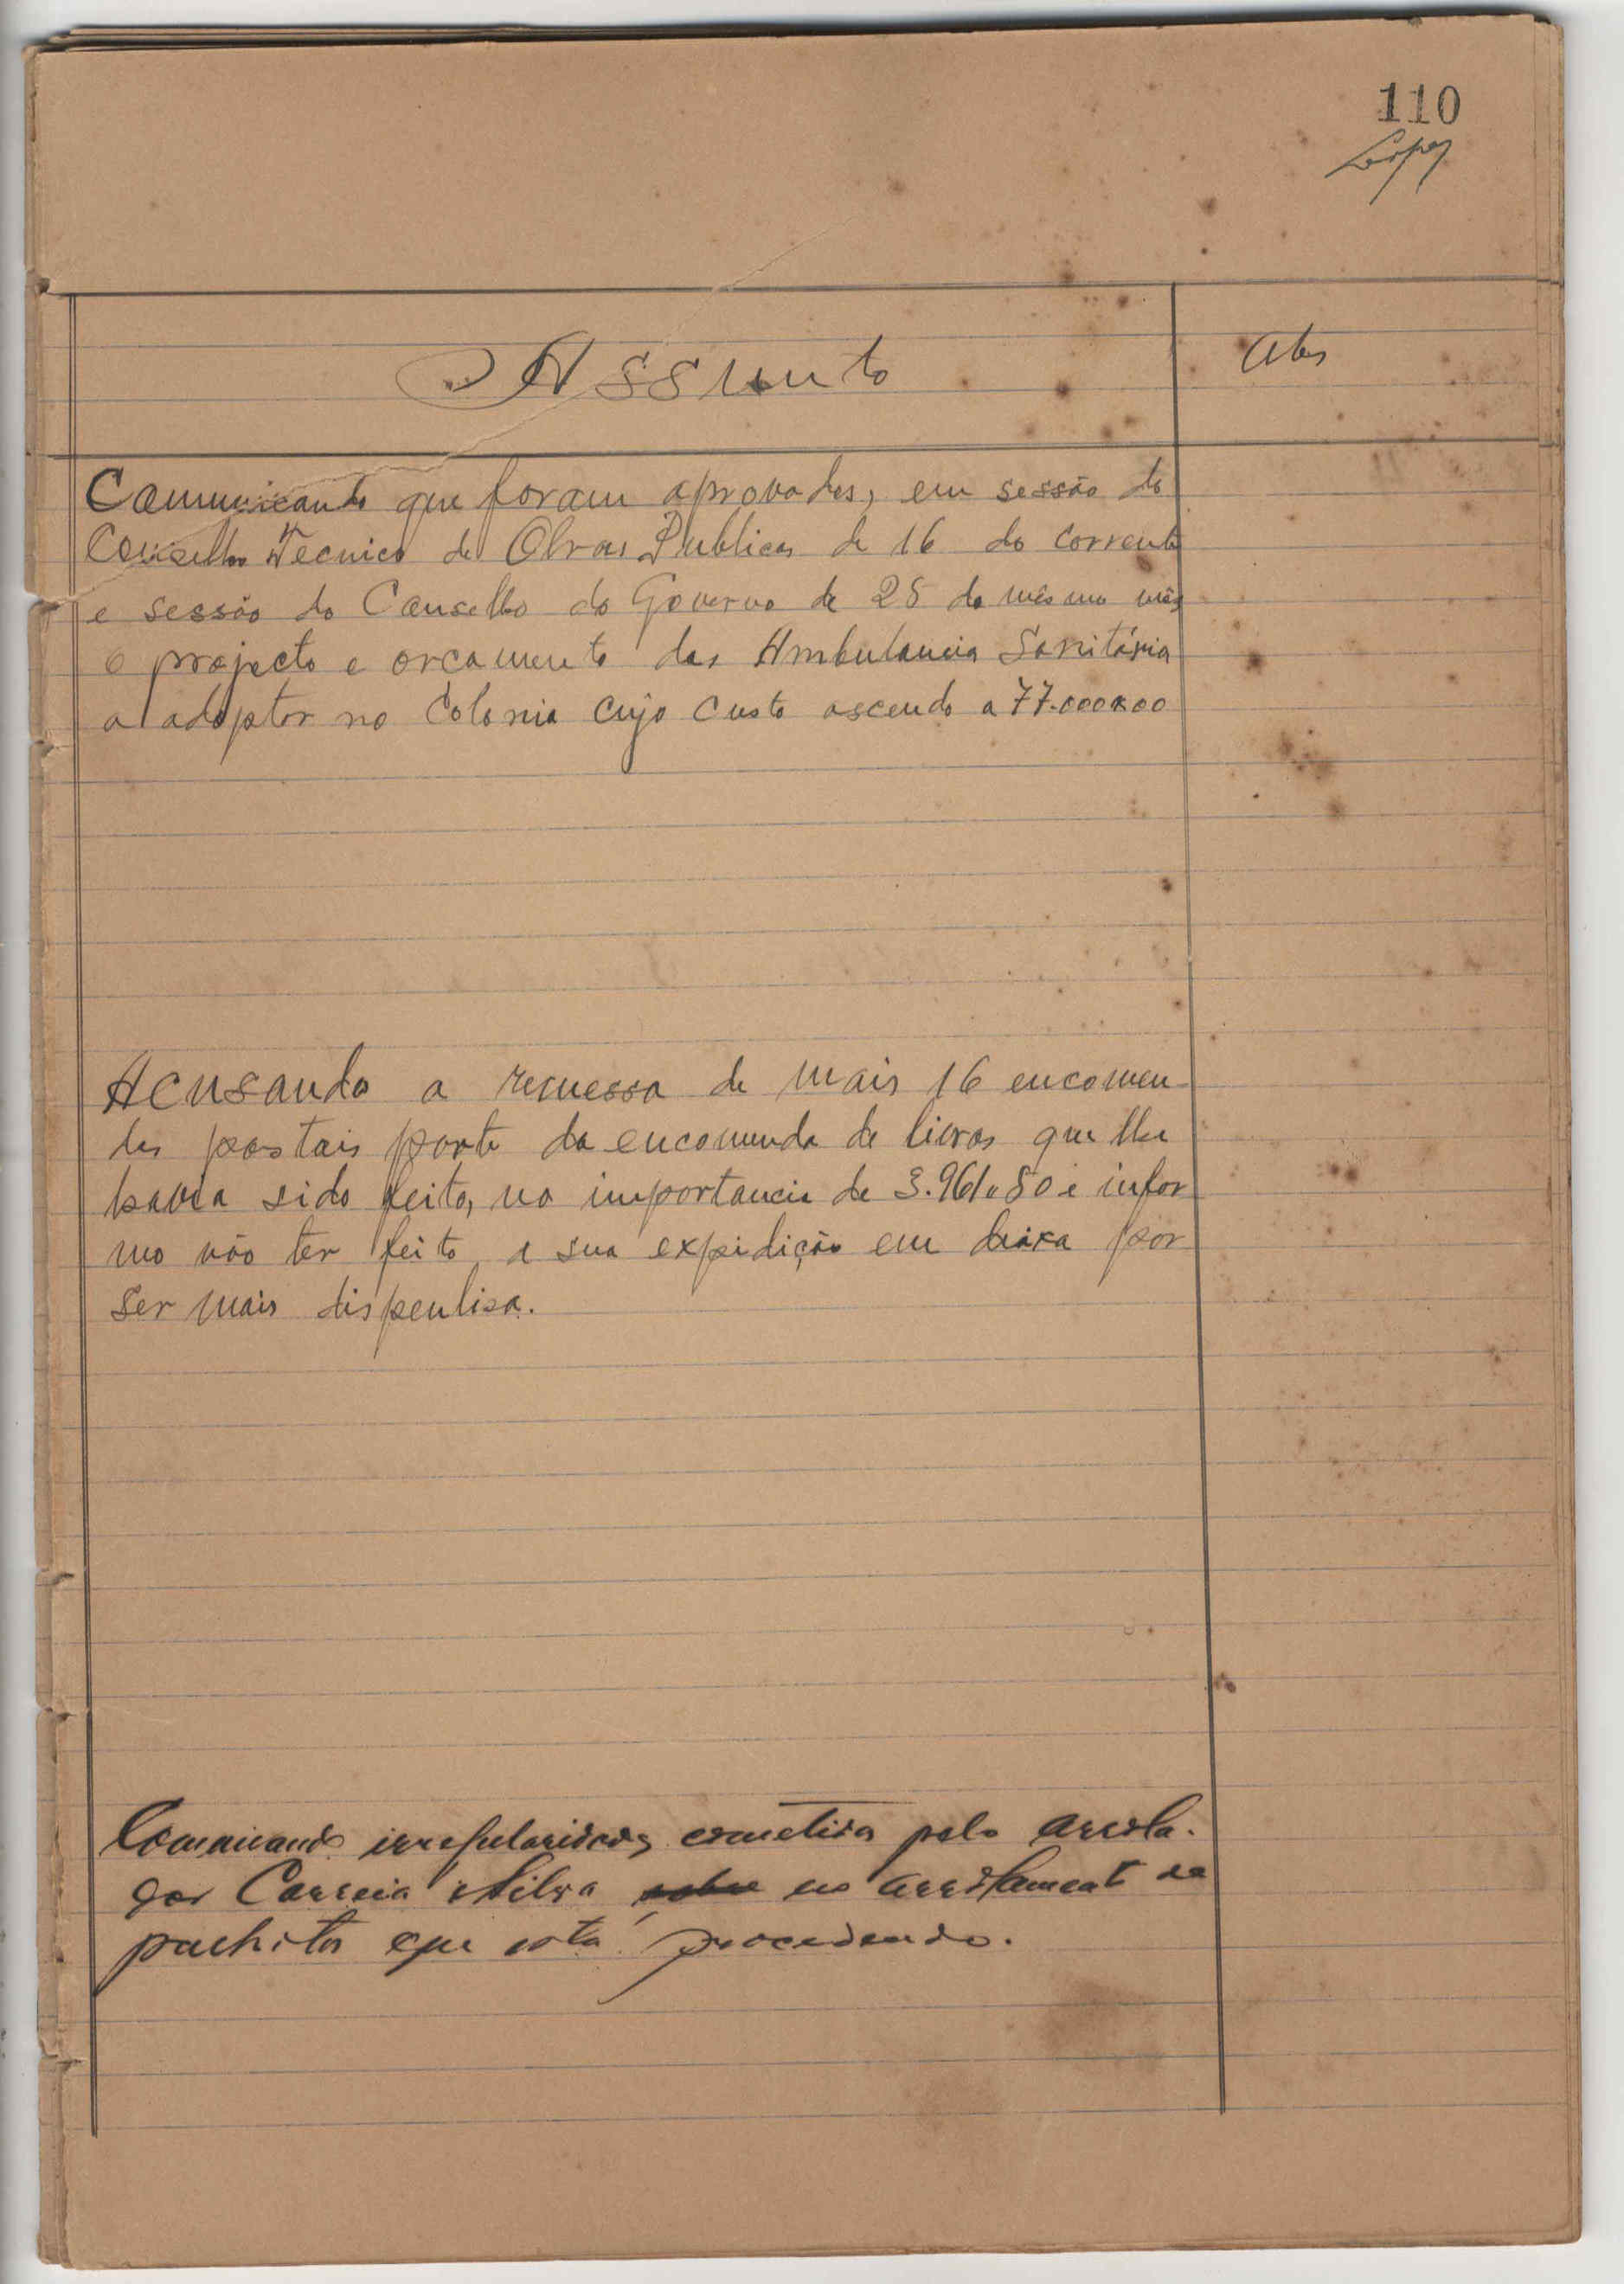 110
Lopes
Assunto
Obs
Comunicando que foram aprovados, em sessão do
Conselho Tecnico de Obras Publicas de 16 do corrente
e sessão do Conselho do Governo de 25 do mêsmo mês
o projecto e orcamento das Ambulancia Sanitária
a adoptar na Colonia cujo custo ascende a 77.000x00
Acusando a remessa de mais 16 encomen-
das postais parte da encomenda de livros que lhe
havia sido feita, na importancia de 3.961.80 e infor
ma não ter feito a sua expidição em caixa por
ser mais dispendiosa.
Comunicando irregularidades cometidas pelo arrola-
dor Correia e Silva sobre no arrolamento de
palhotas que está procedendo.